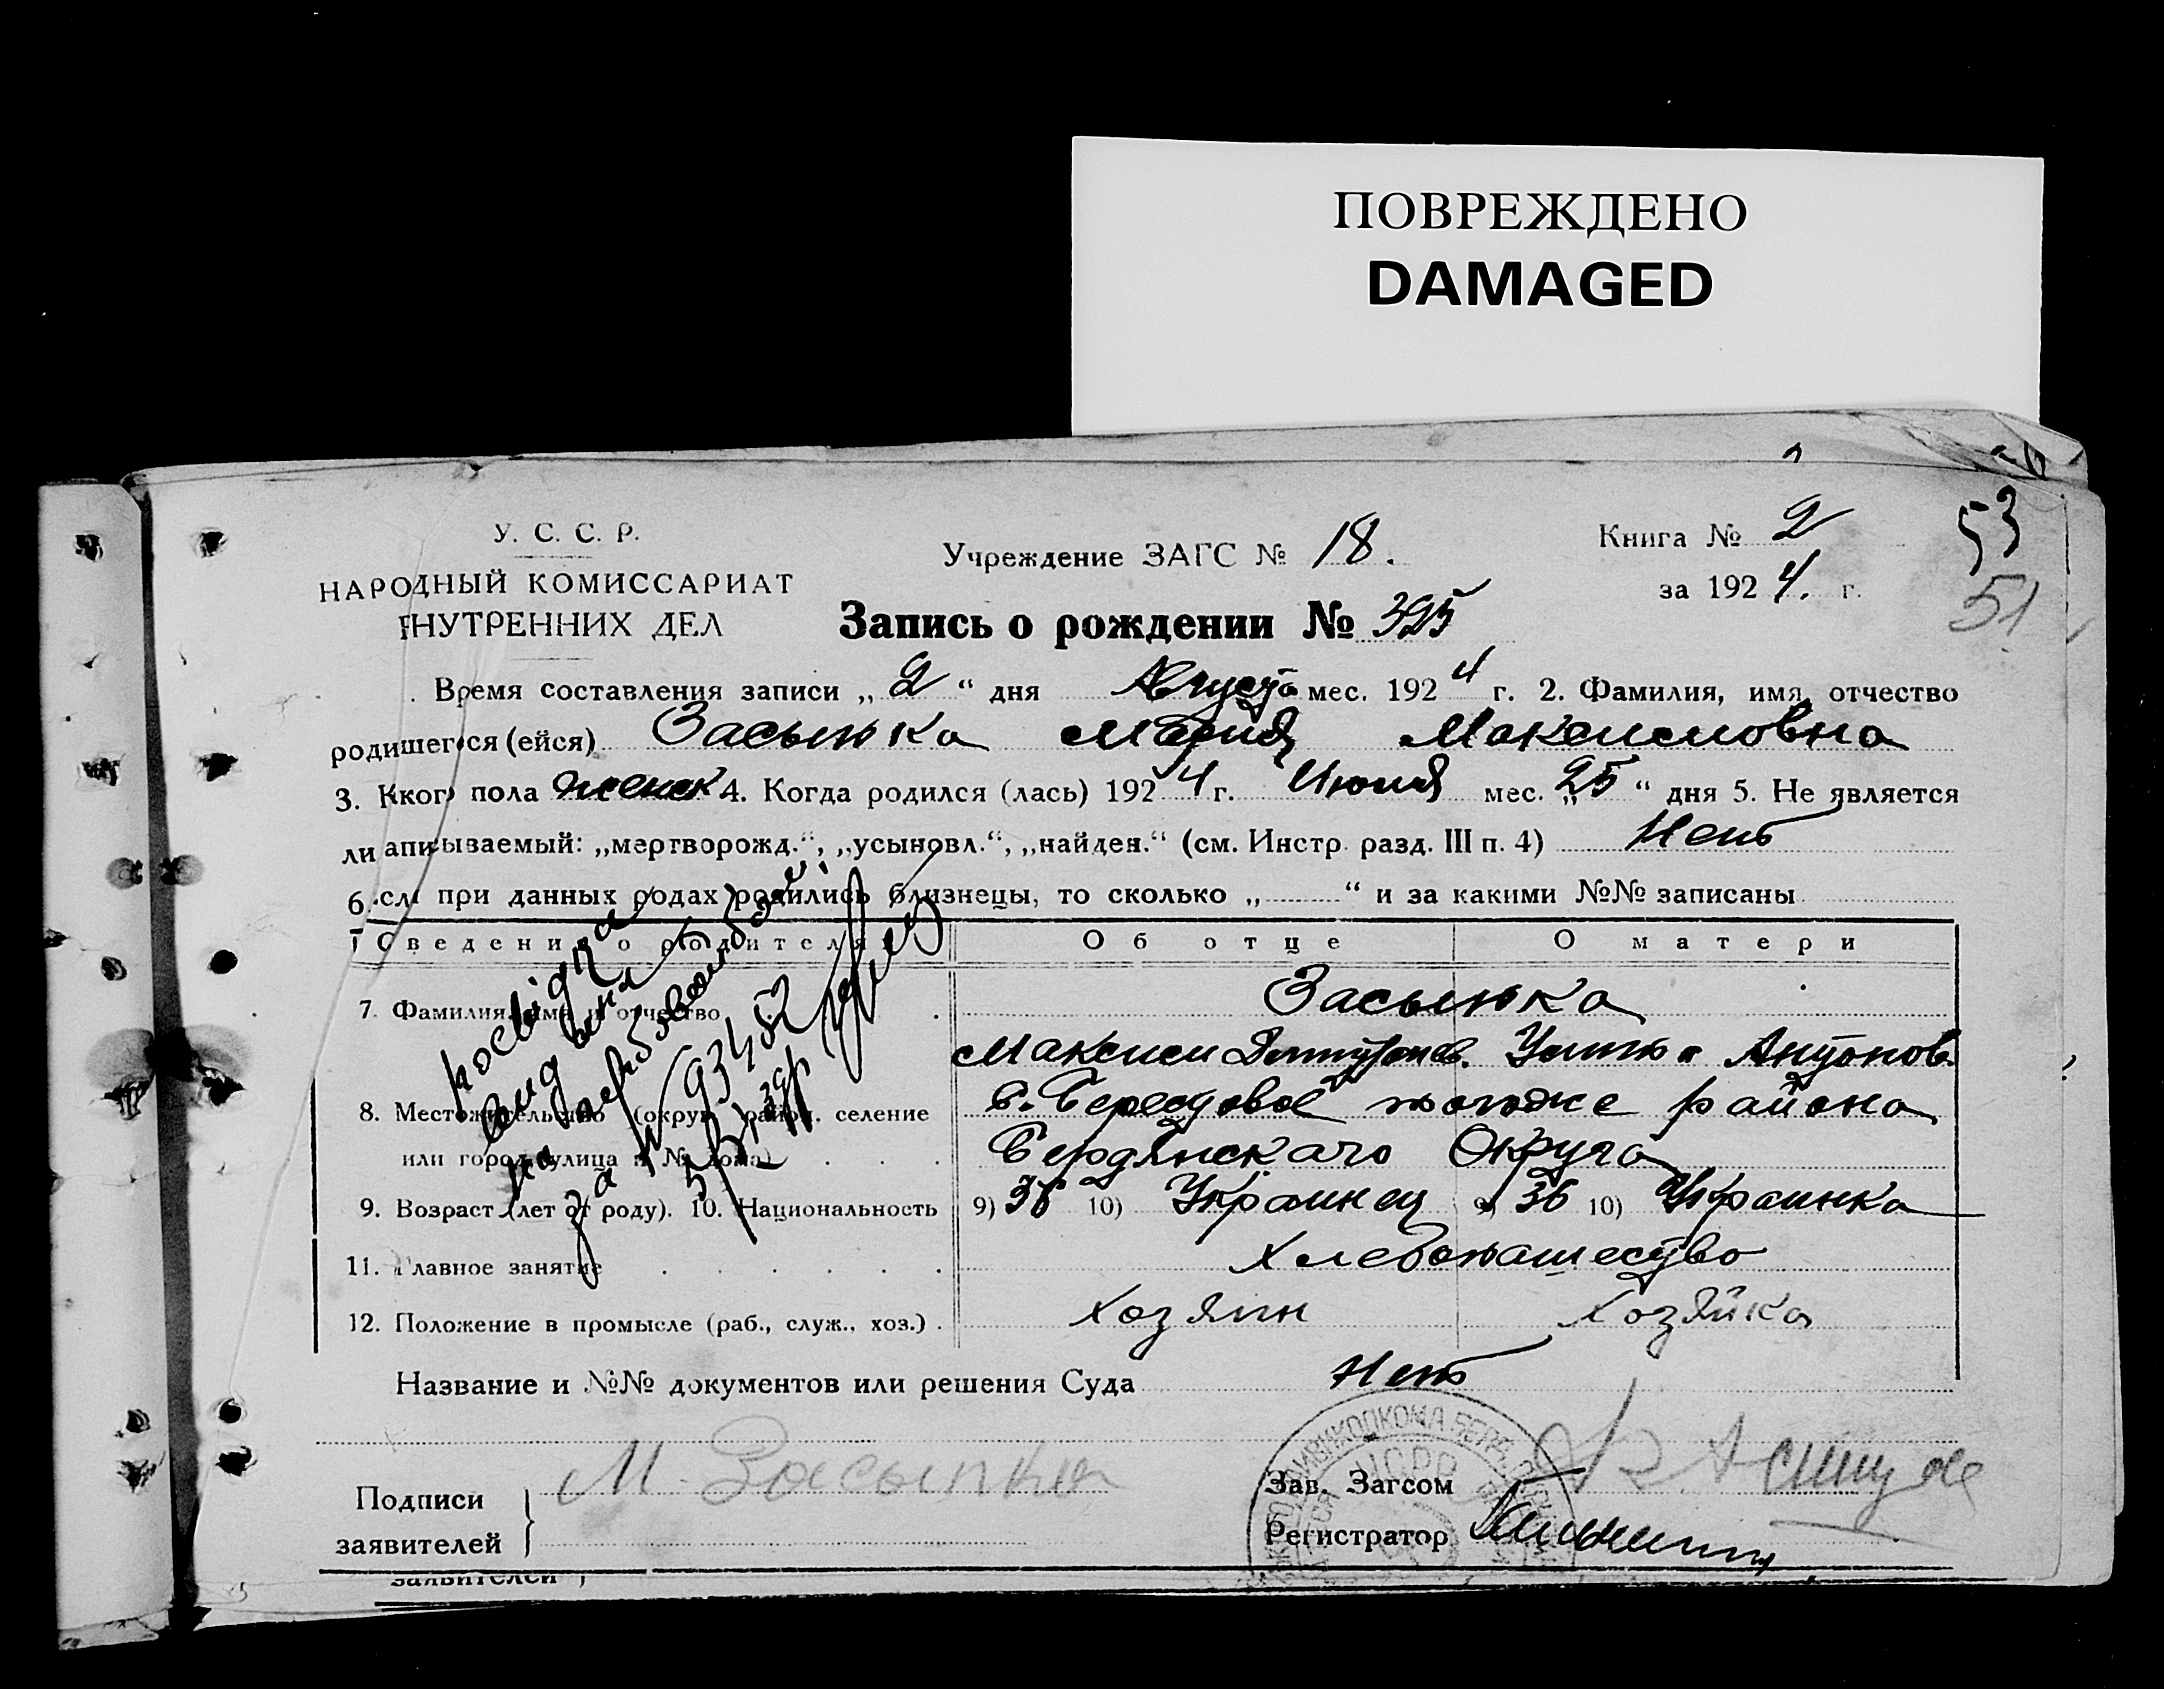 ПОВРЕЖДЕНО
DAMAGED
У. С. С. Р.
НАРОДНЫЙ КОМИССАРИАТ
ВНУТРЕННИХ ДЕЛ
Учреждение ЗАГС № 18.
Книга № 2
за 1924. г.
53
51
Запись о рождении № 325
Время составления записи „2“ дня Августа мес. 1924 г. 2. Фамилия, имя, отчество
родившегося (ейся) Засыпка Мария Максимовна
3. Какого пола женск 4. Когда родился (лась) 1924 г. Июля мес. „25“ дня 5. Не является
ли записываемый: „мертворожд.“, „усыновл.“, „найден.“ (см. Инстр. разд. III п. 4) Нет
6. Если при данных родах родились близнецы, то сколько „ “ и за какими №№ записаны
Сведения о родителях Об отце О матери
7. Фамилия, имя и отчество Засыпка
Максим Антонов.
8. Местожительство (округ, район, селение района
или город, улица и № дома) Бердянскаго Округа
9. Возраст (лет от роду). 10. Национальность 9) 36 10) Украинец 9) 36 10) Украинка
11. Главное занятие Хлебопашество
12. Положение в промысле (раб., служ., хоз.) Хозяин Хозяйка
Название и №№ документов или решения Суда Нет
Подписи
заявителей
М. Засыпка
Зав. Загсом
Регистратор
заявителей